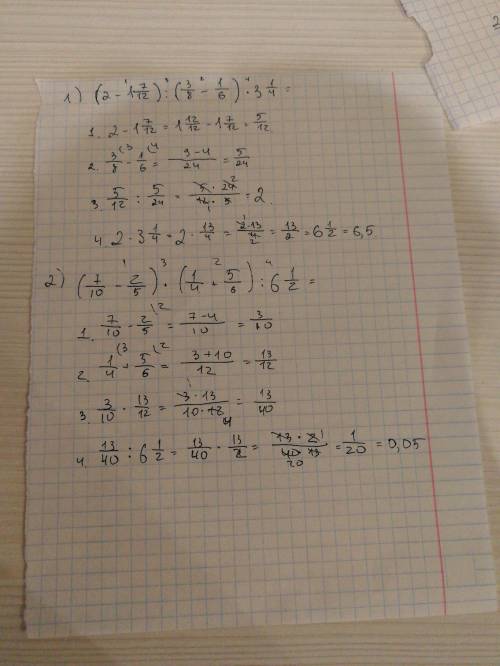 1) (2 - 1 7/12) : (3/8 - 1/6) · 3 1/4 =
1. 2 - 1 7/12 = 1 12/12 - 1 7/12 = 5/12
2. 3/8 - 1/6 = 9-4/24 = 5/24
3. 5/12 : 5/24 = 5 · 24/12 · 5 = 2.
4. 2 · 3 1/4 = 2 · 13/4 = 2·13/4 = 13/2 = 6 1/2 = 6,5
2) (7/10 - 2/5) · (1/4 + 5/6) : 6 1/2 =
1. 7/10 - 2/5 = 7-4/10 = 3/10
2. 1/4 + 5/6 = 3+10/12 = 13/12
3. 3/10 · 13/12 = 3·13/10·12 = 13/40
4. 13/40 : 6 1/2 = 13/40 · 13/2 = 13 · 2/40 · 13 = 1/20 = 0,05